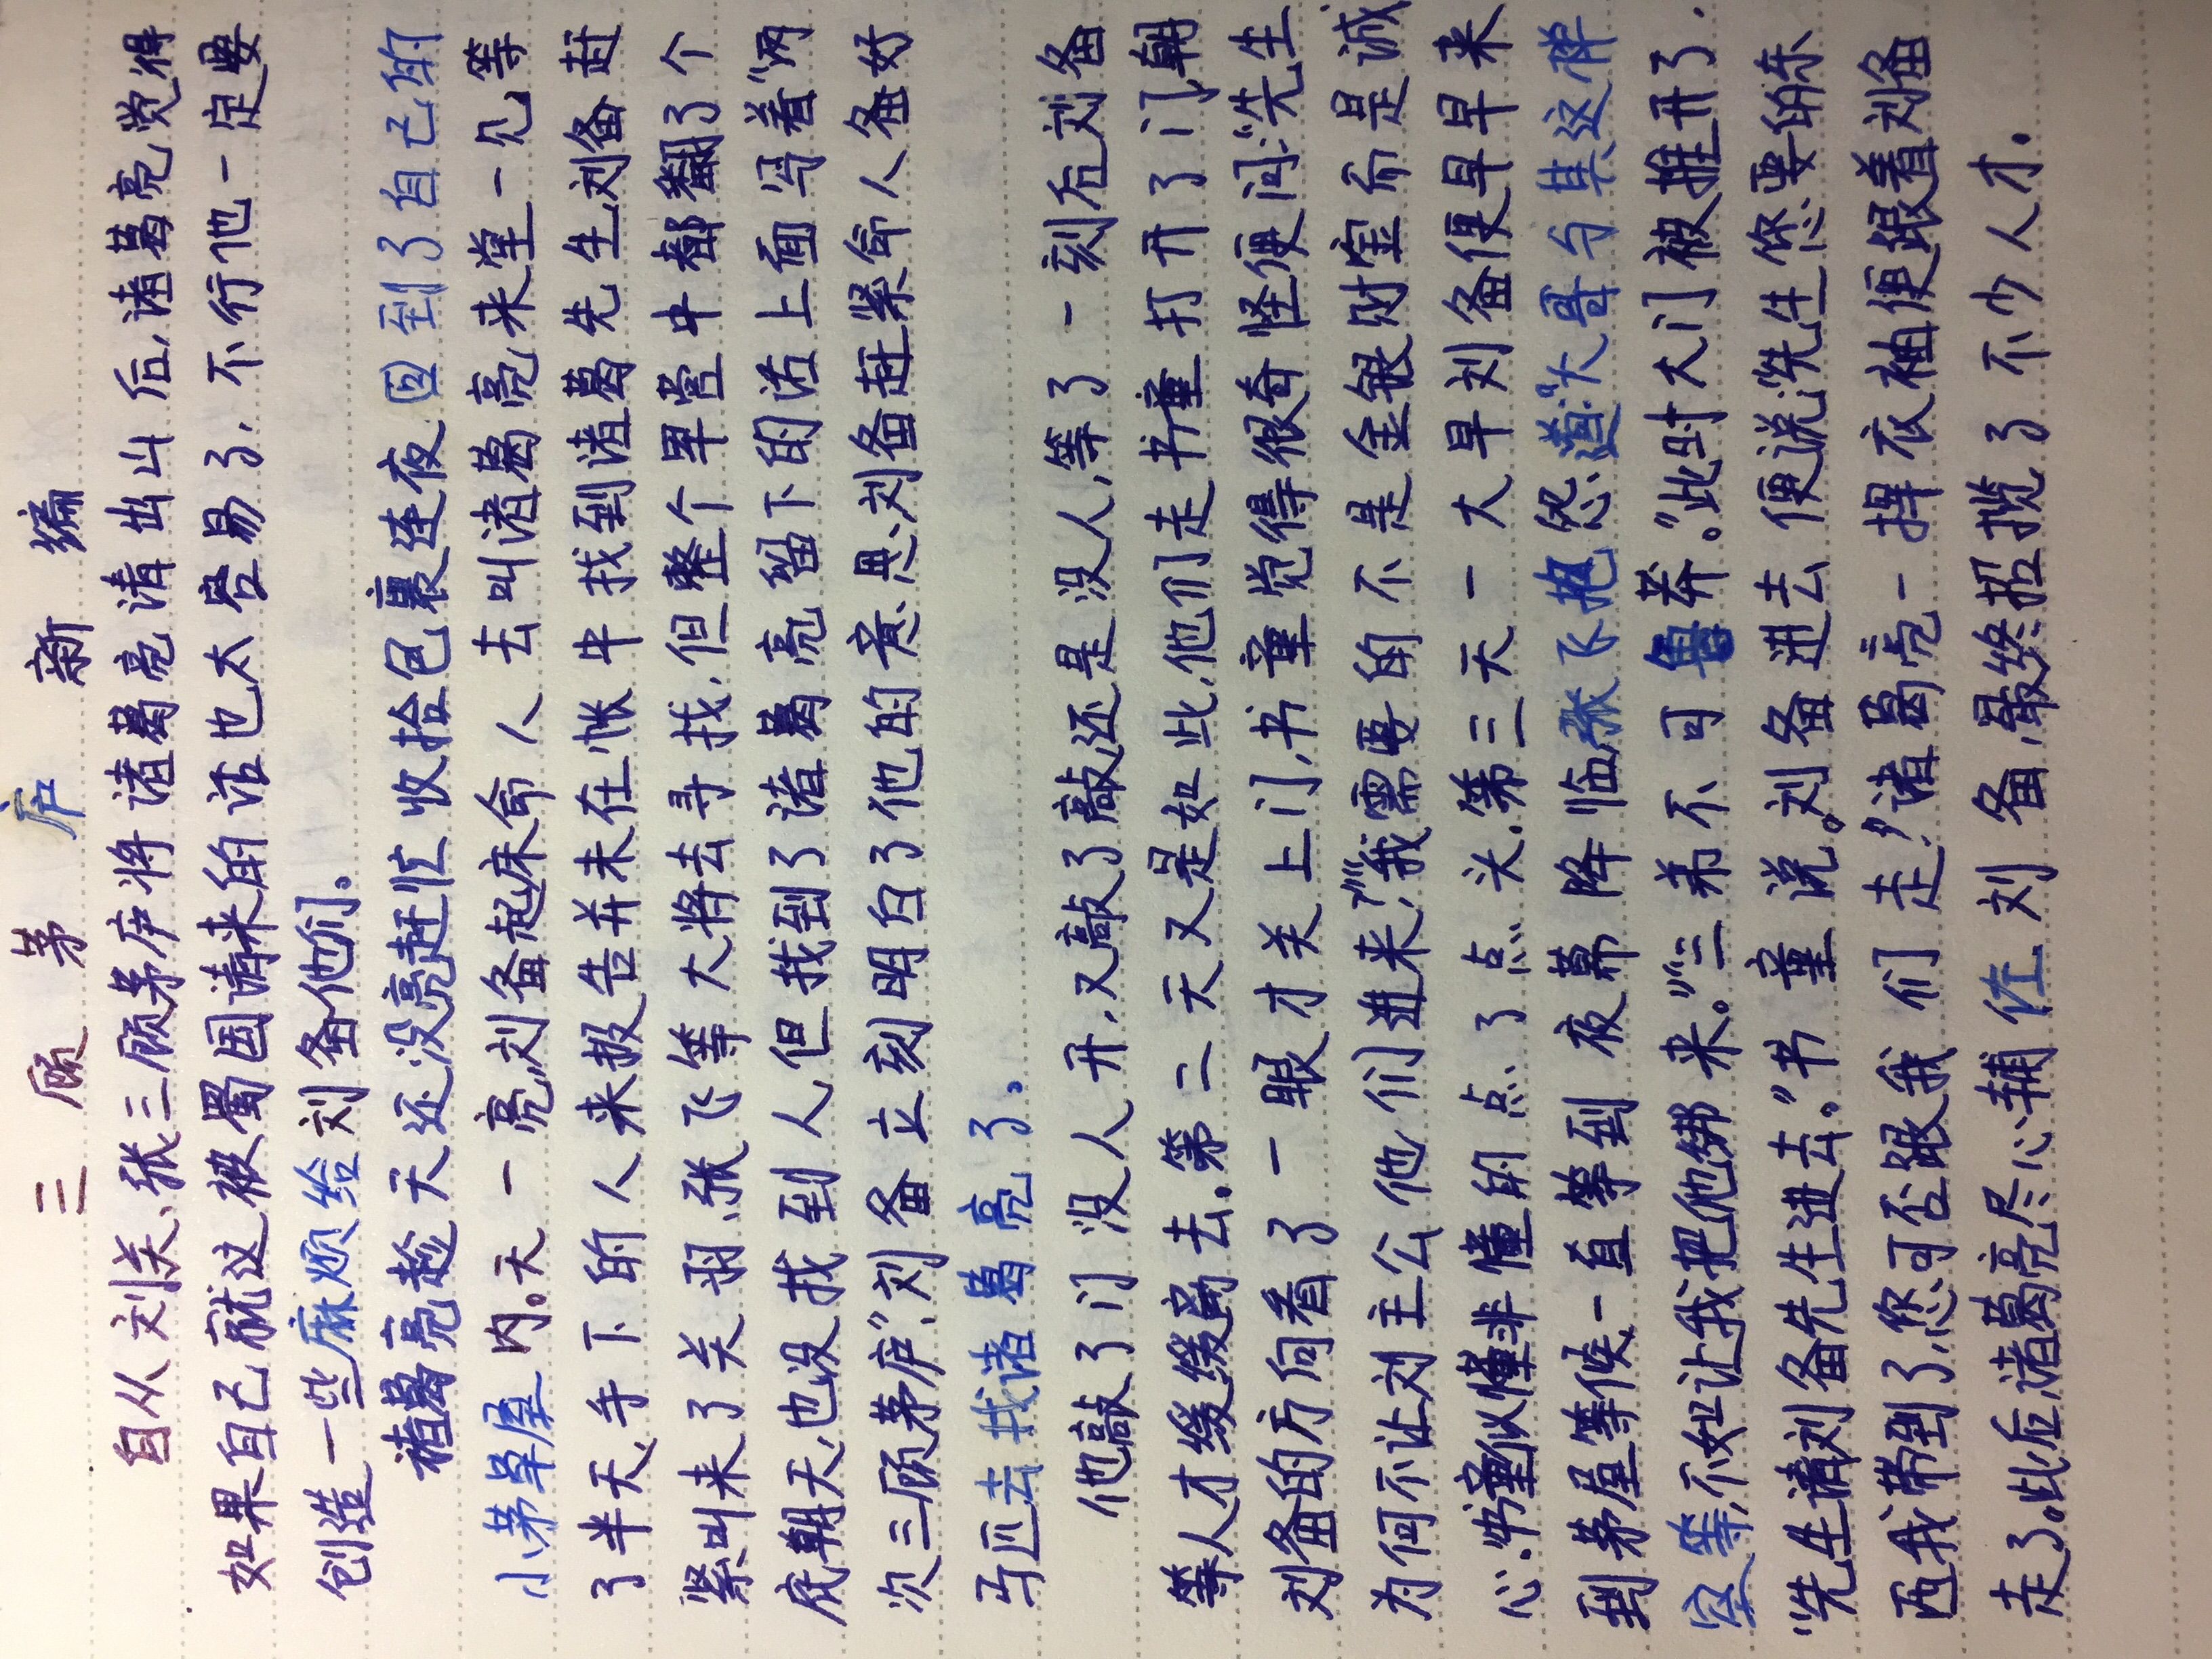 三顾茅庐新编
自从刘关、张三顾茅庐将诸葛亮请出山后,诸葛亮觉得
如果自己就这被蜀国请来的话也太容易了,不行他一定要
创造一些麻烦给刘备他们。
诸葛亮趁天还没亮赶忙收拾包裹连夜回到了自己的
小茅草屋内。天一亮,刘备起床命人去叫诸葛亮来堂一见,等
了半天,手下的人来报告并未在帐中找到诸葛先生刘备赶
紧叫来了关羽、张飞等大将去寻找,但整个军营中都翻了个
底朝天,也没找到人但找到了诸葛亮留下的话上面写着“两
次三顾茅庐”,刘备立刻明白了他的意思,刘备赶紧命人备好
马匹去找诸葛亮了。
他敲了门没人开,又敲了敲还是没人,等了一刻后刘备
等人才缓缓离去.第二天又是如此,他们走书童打开了门,朝
刘备的方向看了一眼才关上门,书童觉得很奇怪便问:“先生
为何不让刘主公他们进来?”“我需要的不是金银财宝而是诚
心.”书童似懂非懂的点了点头.第三天一大早刘备便早早来
到茅屋等候,一直等到夜幕降临张飞抱怨道:“大哥与其这样
空等,不如让我把他绑来。”“三弟不可鲁莽。”此时大门被推开了.
“先生请刘备先生进去。”书童说。刘备进去便说:“先生您要的东
西我带到了,您可否跟我们走?”诸葛亮一挥衣袖便跟着刘备
走了。此后诸葛亮尽心辅佐刘备,最终招揽了不少人才.